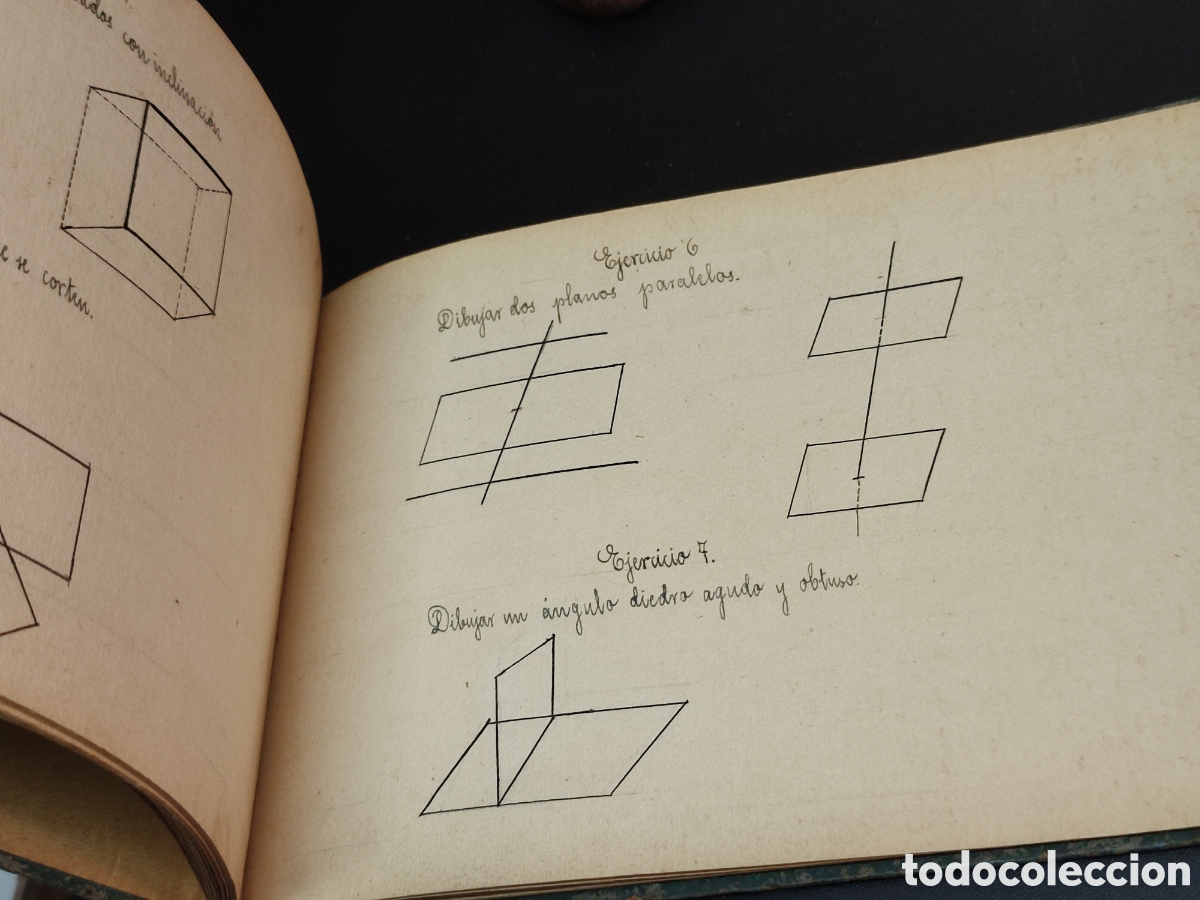 con inclinación
se corten.
Ejercicio 6
Dibujar dos planos paralelos.
Ejercicio 7.
Dibujar un ángulo diedro agudo y obtuso.
todocoleccion